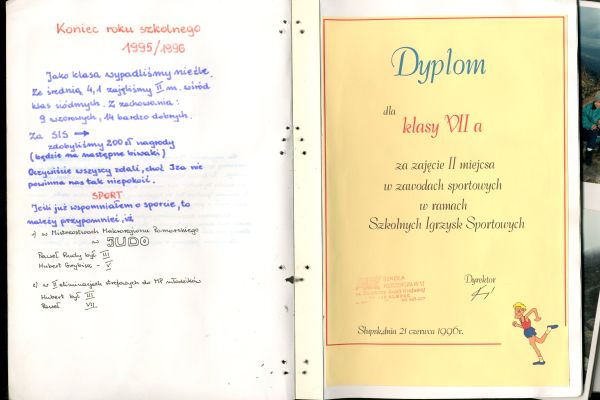 Koniec roku szkolnego
1995/1996
Jako klasa wypadliśmy nieźle.
Ze średnią 4,1 zajęliśmy II m. wśród
klas siódmych. Z zachowania:
9 wzorowych, 14 bardzo dobrych.
Za SIS →
zdobyliśmy 200 zł nagrody
(będzie na następne biwaki)
Oczywiście wszyscy zdali, choć Iza nie
powinna nas tak niepokoić.
SPORT
Jeśli już wspomniałem o sporcie, to
należy przypomnieć, iż
w Mistrzostwach Makroregionu Pomorskiego
w JUDO
Paweł Rudy był III
Hubert - V
w II eliminacjach strefowych do MP młodzików
Hubert był III
Paweł VII.
Dyplom
dla
klasy VII a
za zajęcie II miejsca
w zawodach sportowych
w ramach
Szkolnych Igrzysk Sportowych
SZKOŁA
PODSTAWOWA Nr
Dyrektor
Słupsk, dnia 21 czerwca 1996r.